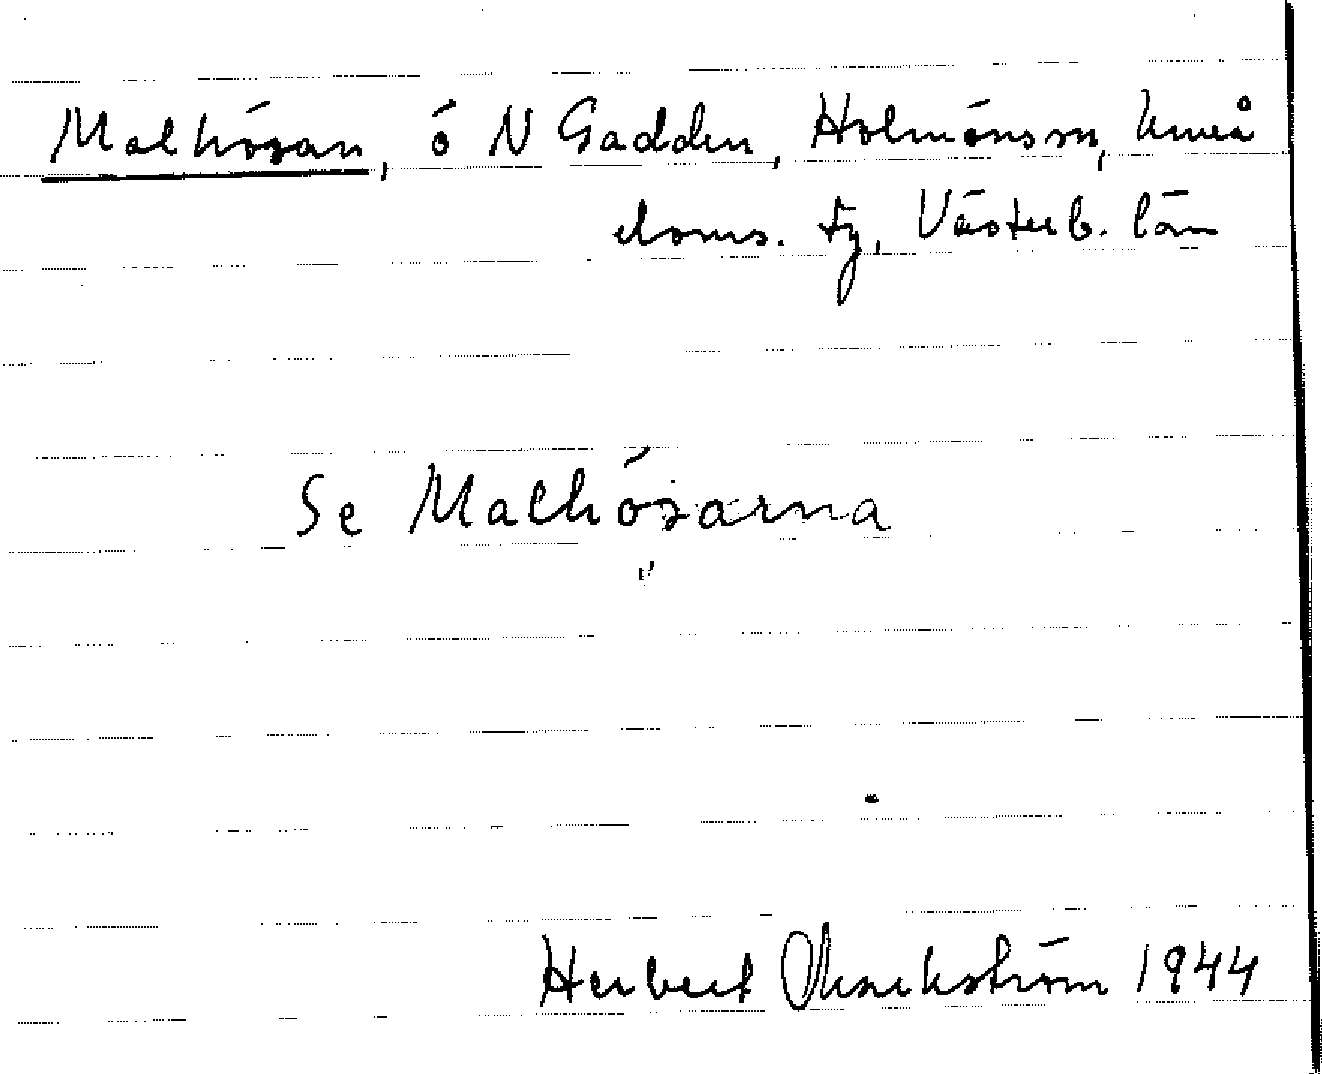 Malhösan, ö N Gadden, Holmöns sn, Umeå
doms. tg, Västerb. län
Se Malhösarna
Herbert Markström 1944